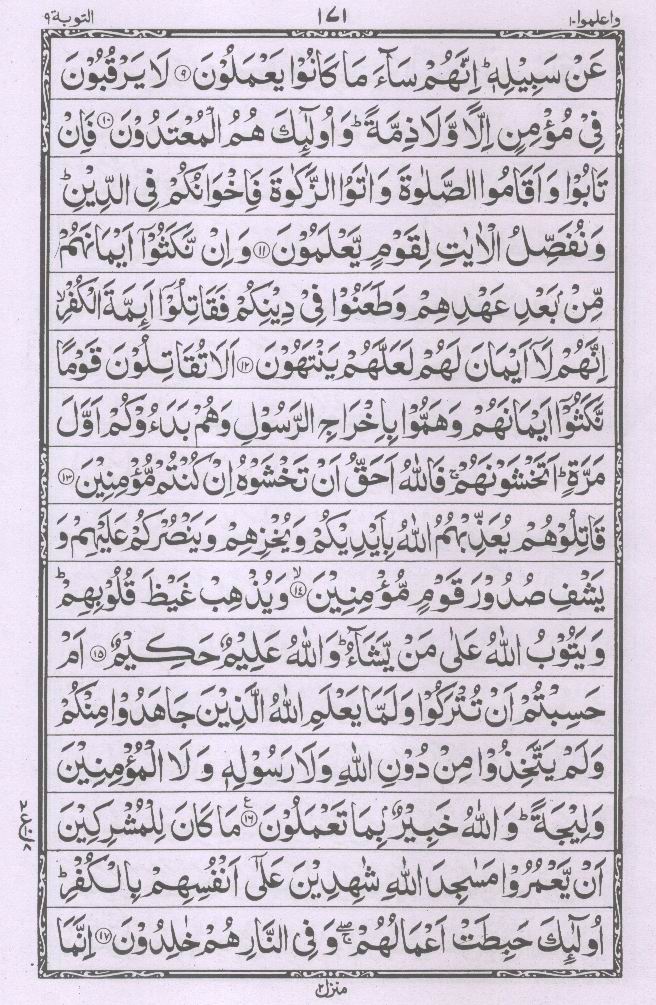 واعلموا ١٠ ١٧١ التوبة ٩
عَنْ سَبِيْلِهٖ ؕ اِنَّهُمْ سَآءَ مَا كَانُوْا يَعْمَلُوْنَ ۹ لَا يَرْقُبُوْنَ
فِيْ مُؤْمِنٍ اِلًّا وَّلَا ذِمَّةً ؕ وَاُولٰٓئِكَ هُمُ الْمُعْتَدُوْنَ ۱۰ فَاِنْ
تَابُوْا وَاَقَامُوا الصَّلٰوةَ وَاٰتَوُا الزَّكٰوةَ فَاِخْوَانُكُمْ فِي الدِّيْنِ ؕ
وَنُفَصِّلُ الْاٰيٰتِ لِقَوْمٍ يَّعْلَمُوْنَ ۱۱ وَاِنْ نَّكَثُوْٓا اَيْمَانَهُمْ
مِّنْۢ بَعْدِ عَهْدِهِمْ وَطَعَنُوْا فِيْ دِيْنِكُمْ فَقَاتِلُوْٓا اَىِٕمَّةَ الْكُفْرِ ۙ
اِنَّهُمْ لَآ اَيْمَانَ لَهُمْ لَعَلَّهُمْ يَنْتَهُوْنَ ۱۲ اَلَا تُقَاتِلُوْنَ قَوْمًا
نَّكَثُوْٓا اَيْمَانَهُمْ وَهَمُّوْا بِاِخْرَاجِ الرَّسُوْلِ وَهُمْ بَدَءُوْكُمْ اَوَّلَ
مَرَّةٍ ؕ اَتَخْشَوْنَهُمْ ۚ فَاللّٰهُ اَحَقُّ اَنْ تَخْشَوْهُ اِنْ كُنْتُمْ مُّؤْمِنِيْنَ ۱۳
قَاتِلُوْهُمْ يُعَذِّبْهُمُ اللّٰهُ بِاَيْدِيْكُمْ وَيُخْزِهِمْ وَيَنْصُرْكُمْ عَلَيْهِمْ وَ
يَشْفِ صُدُوْرَ قَوْمٍ مُّؤْمِنِيْنَ ۙ ۱۴ وَيُذْهِبْ غَيْظَ قُلُوْبِهِمْ ؕ
وَيَتُوْبُ اللّٰهُ عَلٰى مَنْ يَّشَآءُ ؕ وَاللّٰهُ عَلِيْمٌ حَكِيْمٌ ۱۵ اَمْ
حَسِبْتُمْ اَنْ تُتْرَكُوْا وَلَمَّا يَعْلَمِ اللّٰهُ الَّذِيْنَ جَاهَدُوْا مِنْكُمْ
وَلَمْ يَتَّخِذُوْا مِنْ دُوْنِ اللّٰهِ وَلَا رَسُوْلِهٖ وَلَا الْمُؤْمِنِيْنَ
وَلِيْجَةً ؕ وَاللّٰهُ خَبِيْرٌۢ بِمَا تَعْمَلُوْنَ ۱۶ ع مَا كَانَ لِلْمُشْرِكِيْنَ
اَنْ يَّعْمُرُوْا مَسٰجِدَ اللّٰهِ شٰهِدِيْنَ عَلٰٓى اَنْفُسِهِمْ بِالْكُفْرِ ؕ
اُولٰٓئِكَ حَبِطَتْ اَعْمَالُهُمْ ۚۖ وَفِي النَّارِ هُمْ خٰلِدُوْنَ ۱۷ اِنَّمَا
منزل ٢